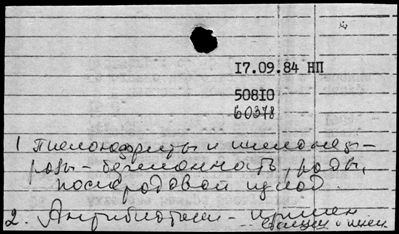 17.09.84 НП
50810
60378
1 Пиелонефриты и пиелонефрозы - беременность, роды,
послеродовой период.
2. Антибиотики - примен.